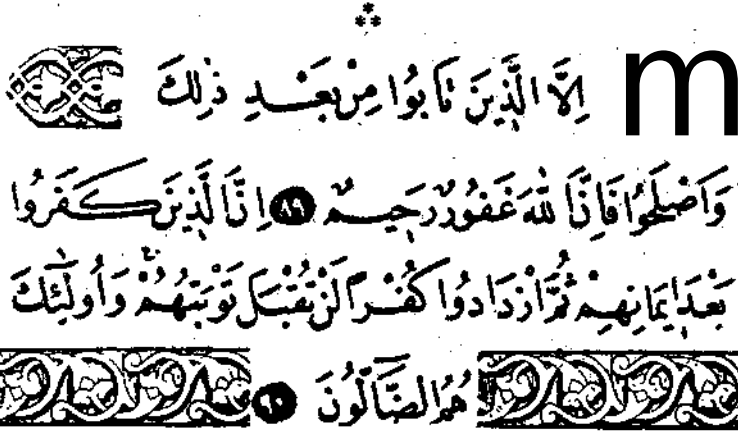 اِلَّا الَّذٖينَ تَابُوا مِنْ بَعْدِ ذٰلِكَ m
وَاَصْلَحُوا فَاِنَّ اللّٰهَ غَفُورٌ رَحٖيمٌ ﴿٨٩﴾ اِنَّ الَّذٖينَ كَفَرُوا
بَعْدَ اٖيمَانِهِمْ ثُمَّ ازْدَادُوا كُفْرًا لَنْ تُقْبَلَ تَوْبَتُهُمْ وَاُولٰٓئِكَ
هُمُ الضَّٓالُّونَ ﴿٩٠﴾